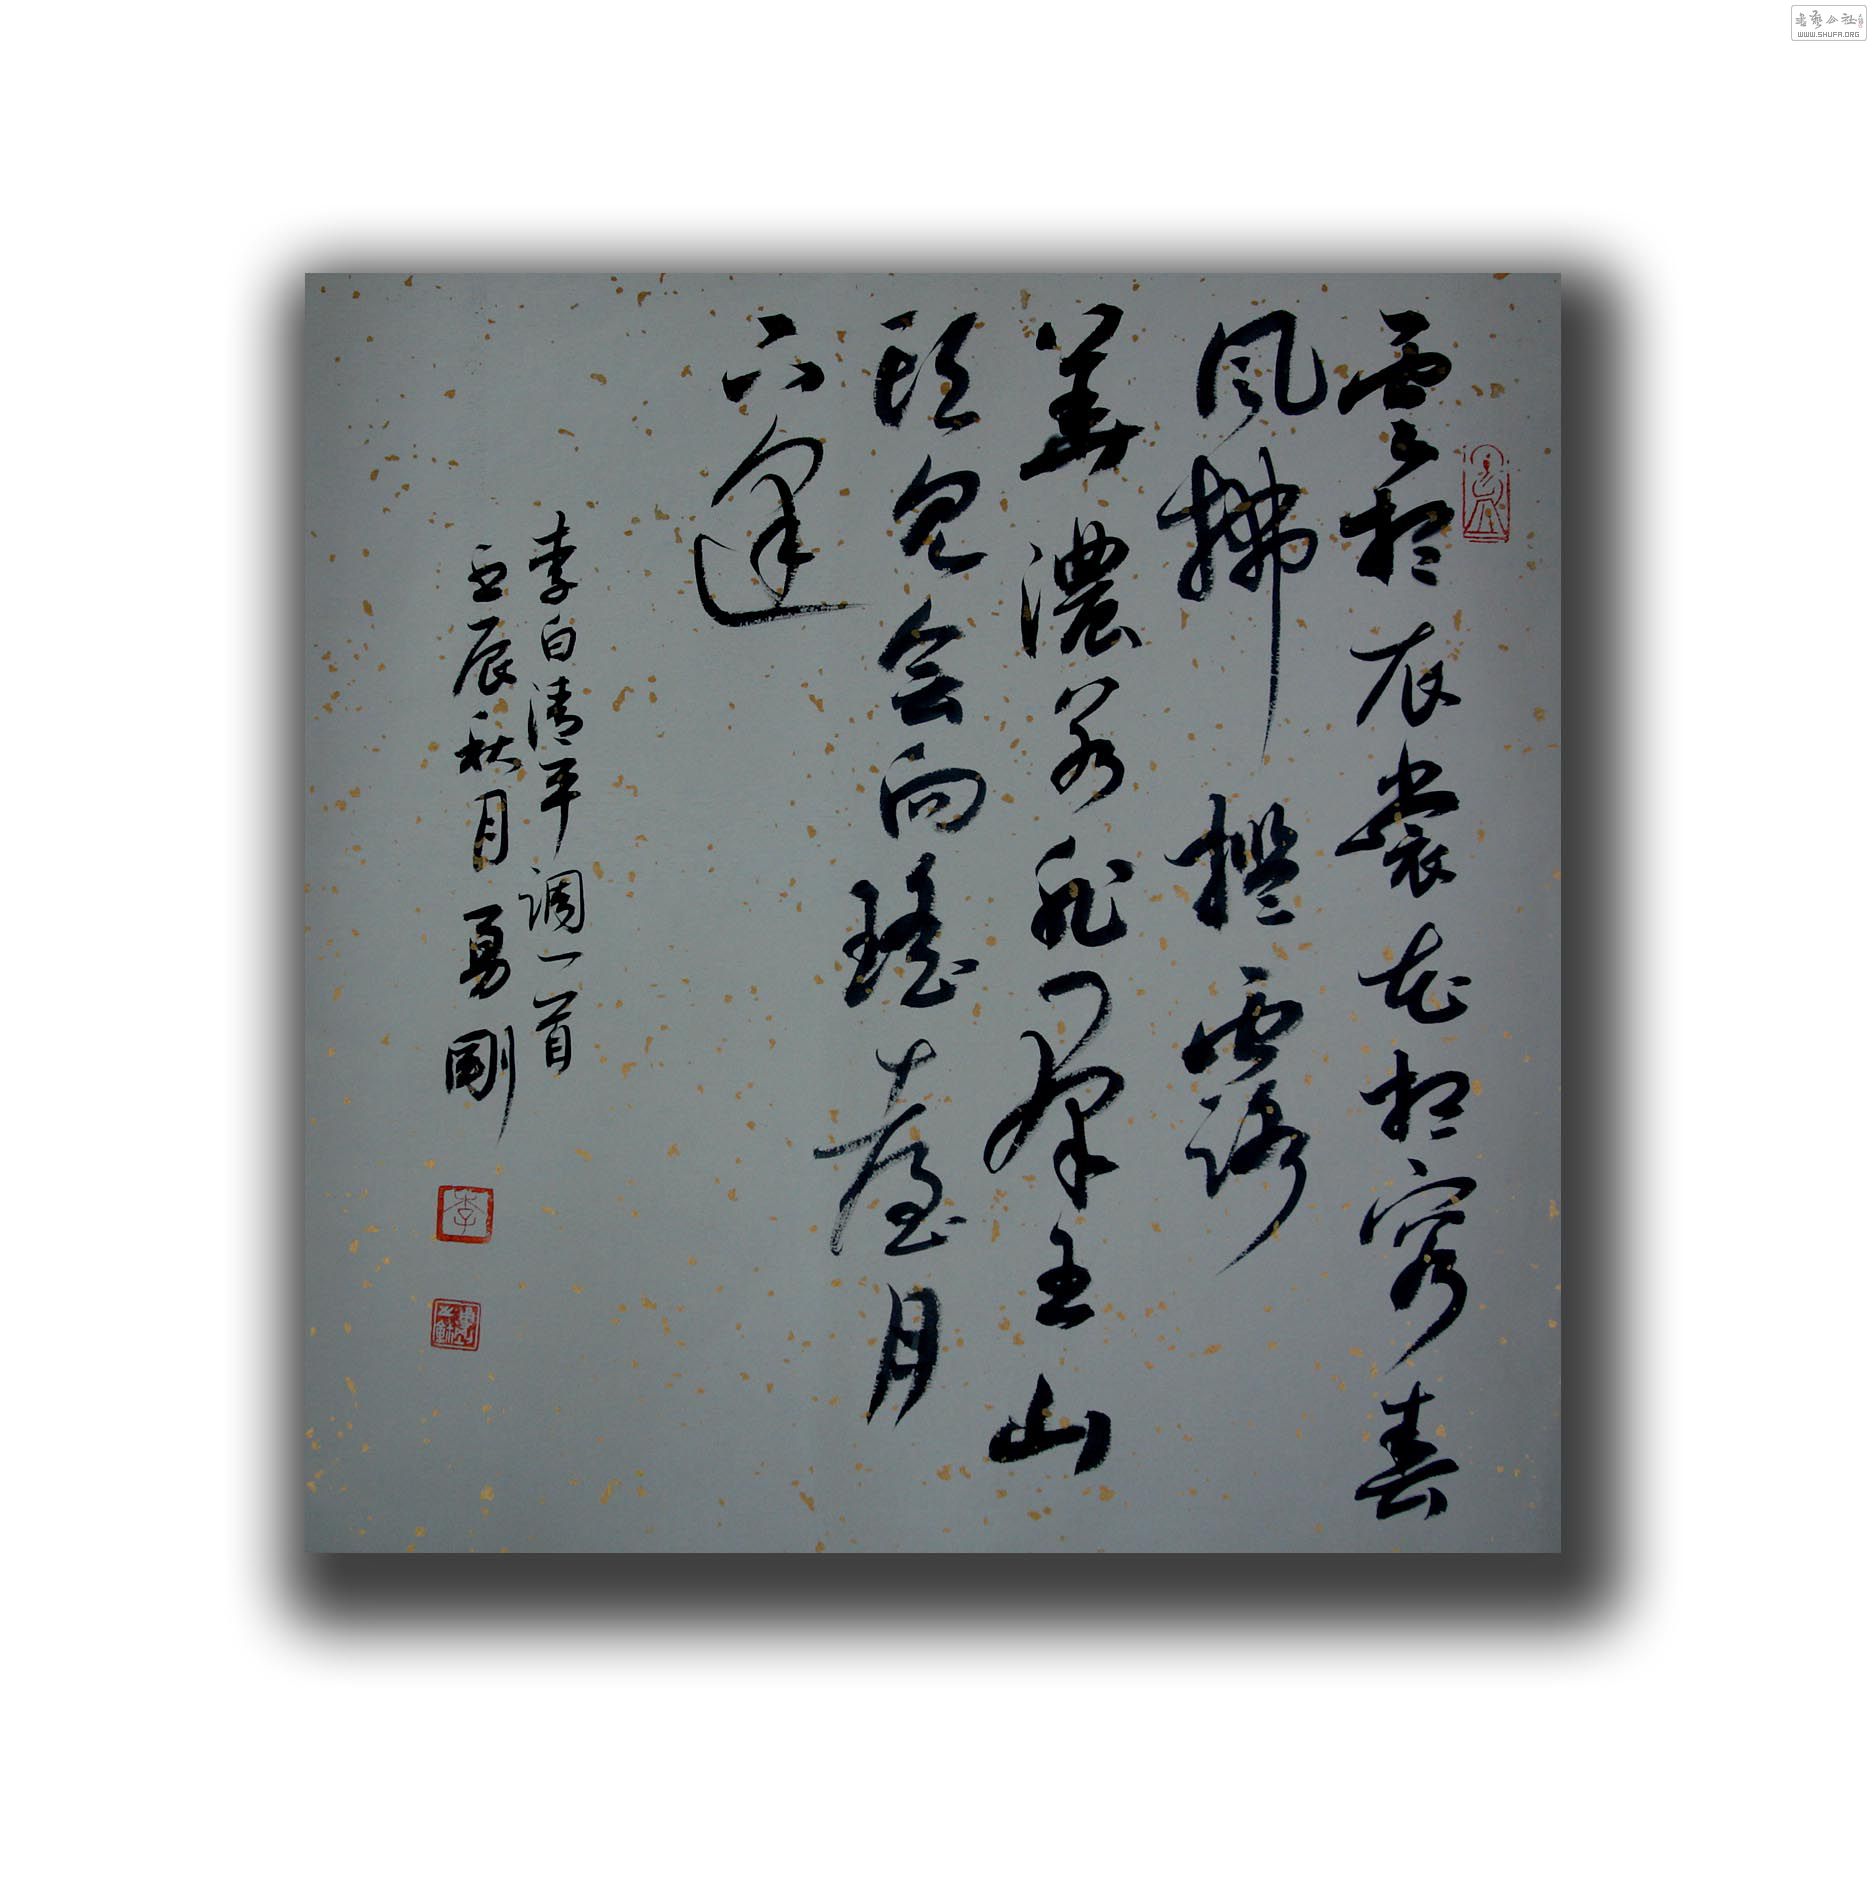 雲想衣裳花想容春
風拂檻露
華濃若非群玉山
頭見会向瑤臺月
下逢
李白清平调一首
壬辰秋月勇剛
李
書藝公社
WWW.SHUFA.ORG